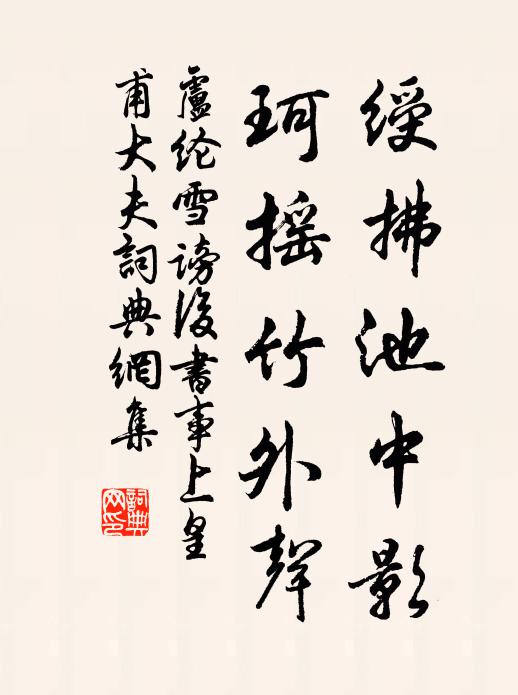 綬拂池中影
珂搖竹外聲
盧纶雪謗後書事上皇
甫大夫詞典網集
詞典
网印